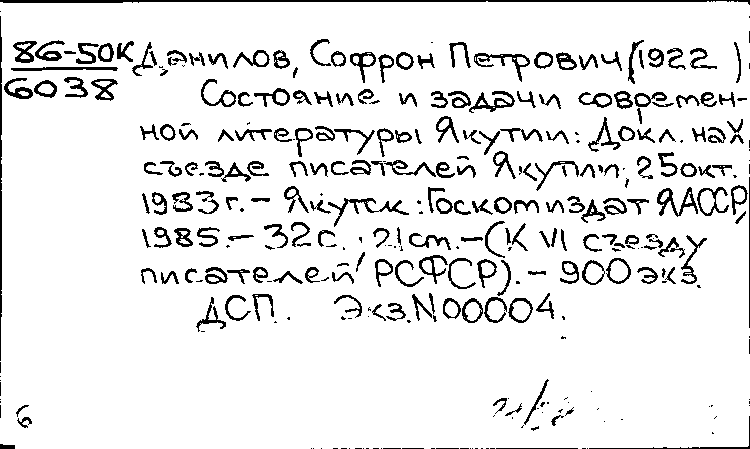 86-50К Данилов, Софрон Петрович (1922 )
6038 Состояние и задачи современ-
ной литературы Якутии: Докл. на X
съезде писателей Якутии, 25 окт.
1983 г. - Якутск: Госкомиздат ЯАССР,
1985. - 32 с. ; 21 см. - (К VI съезду
писателей РСФСР). - 900 экз.
ДСП. Экз. N 00004.
6